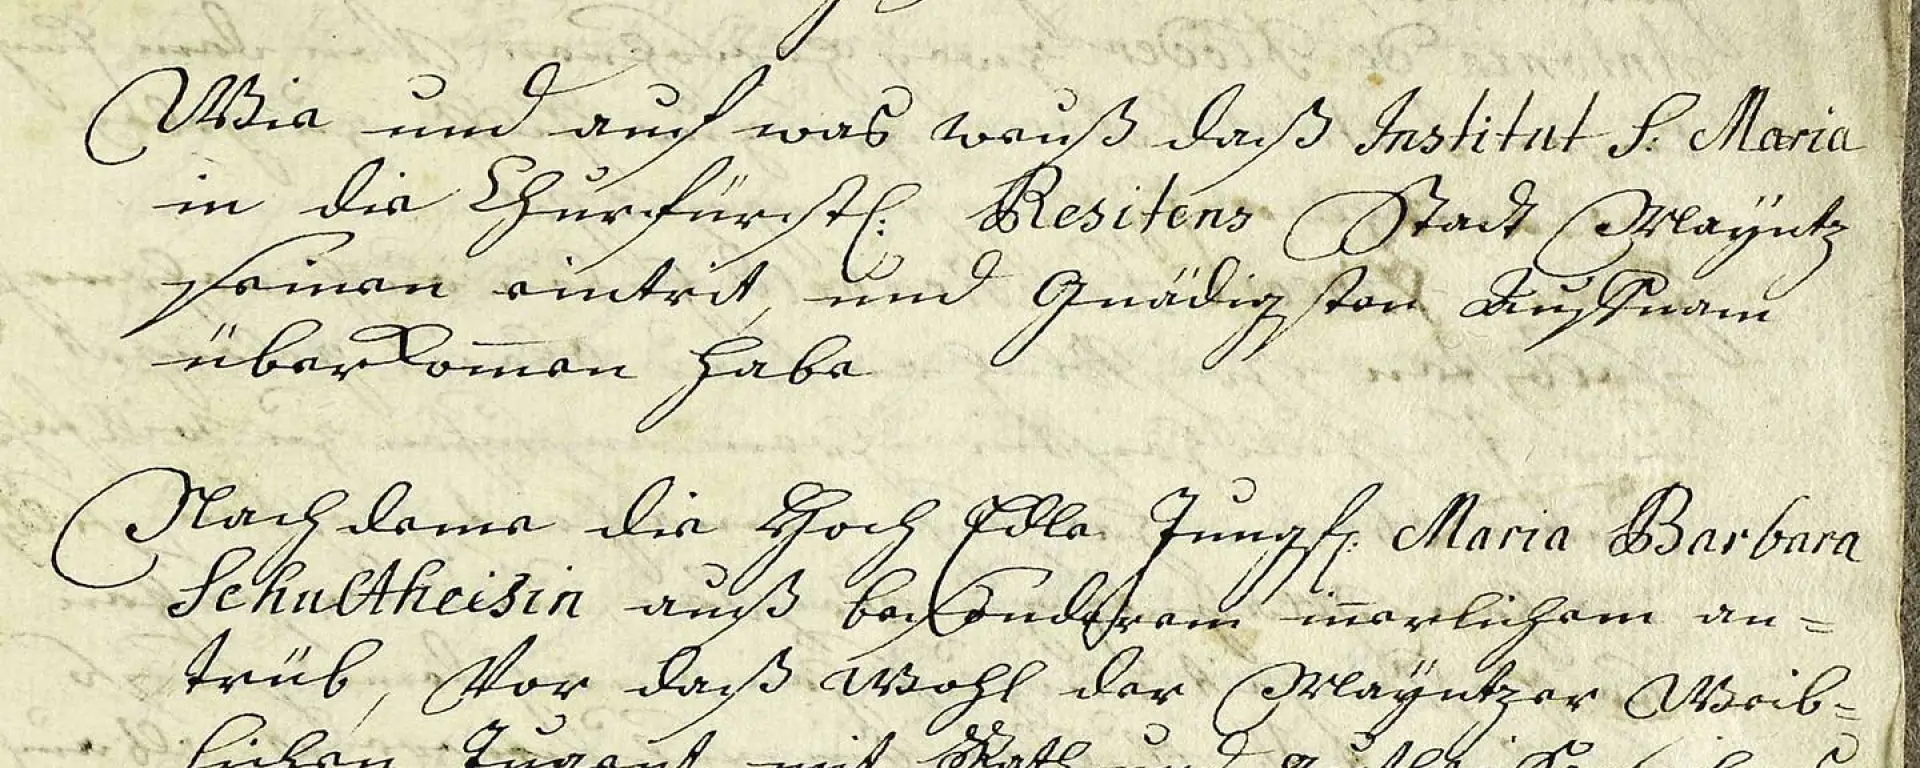 Wie und auch was weiß daß Institut S: Maria
in die Churfürstl: Resitens Stadt Mayntz
seinen eintrit, und Gnädigsten Auffnam
überkom̄en habe
Nachdeme die Hoch Edle Jungf: Maria Barbara
Schultheisin auß besonderem in̄erlichem an=
trüb, Vor daß Wohl der Mayntzer Weib=
lichen Jugent mit Rath und